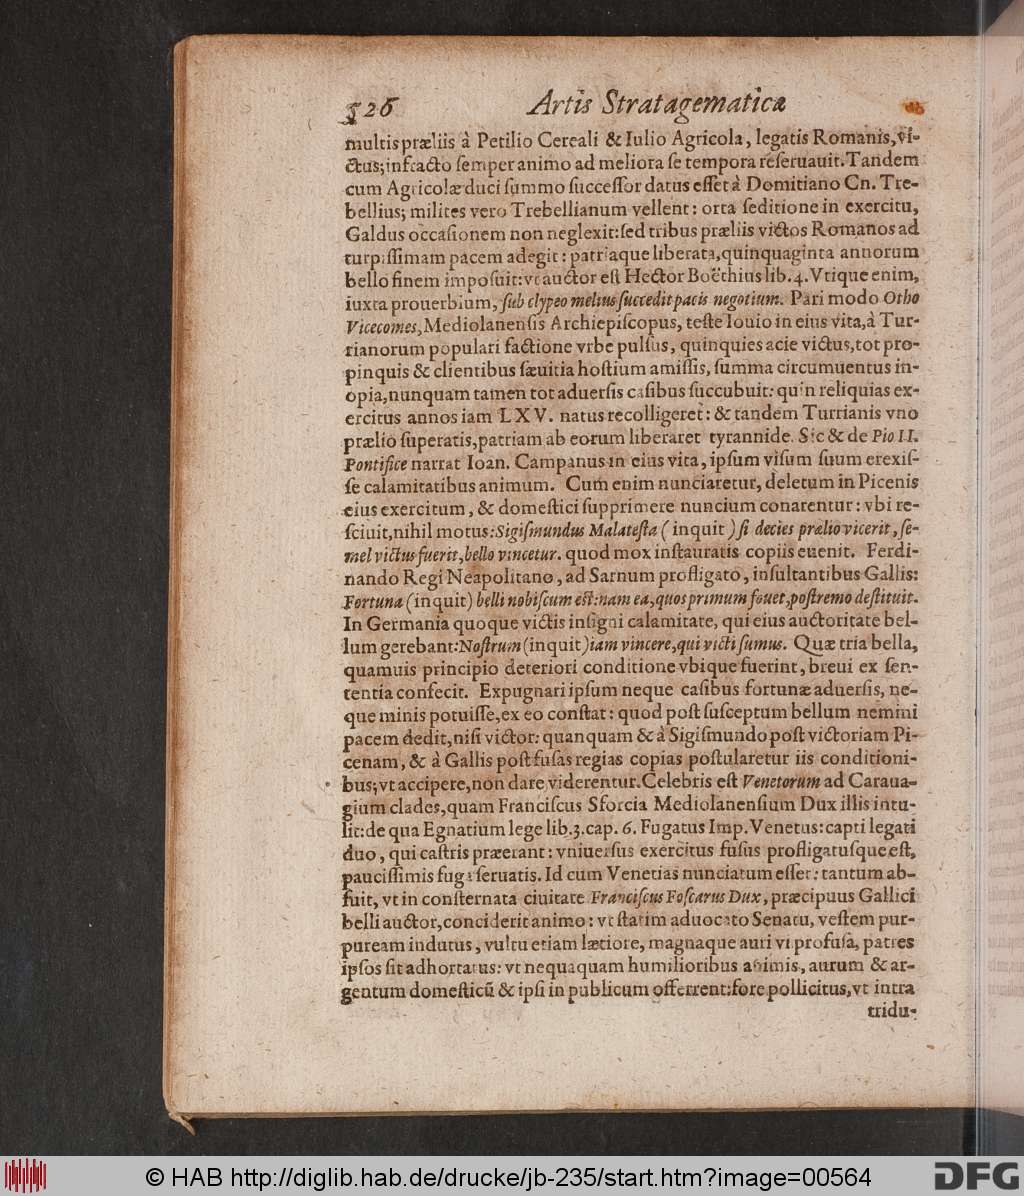 526 Artis Stratagematicæ
multis præliis à Petilio Cereali & Iulio Agricola, legatis Romanis, vi-
ctus; infracto ſemper animo ad meliora ſe tempora reſeruauit. Tandem
cum Agricolæ duci ſummo ſucceſſor datus eſſet à Domitiano Cn. Tre-
bellius; milites vero Trebellianum vellent: orta ſeditione in exercitu,
Galdus occaſionem non neglexit: ſed tribus præliis victos Romanos ad
turpiſſimam pacem adegit: patriaque liberata, quinquaginta annorum
bello finem impoſuit: vt auctor eſt Hector Boëthius lib. 4. Vtique enim,
iuxta prouerbium, ſub clypeo melius ſuccedit pacis negotium. Pari modo Otho
Vicecomes, Mediolanenſis Archiepiſcopus, teſte Iouio in eius vita, à Tur-
rianorum populari factione vrbe pulſus, quinquies acie victus, tot pro-
pinquis & clientibus ſæuitia hoſtium amiſſis, ſumma circumuentus in-
opia, nunquam tamen tot aduerſis caſibus ſuccubuit: quin reliquias ex-
ercitus annos iam LXV. natus recolligeret: & tandem Turrianis vno
prælio ſuperatis, patriam ab eorum liberaret tyrannide. Sic & de Pio II.
Pontifice narrat Ioan. Campanus in eius vita, ipſum viſum ſuum erexiſ-
ſe calamitatibus animum. Cum enim nunciaretur, deletum in Picenis
eius exercitum, & domeſtici ſupprimere nuncium conarentur: vbi re-
ſciuit, nihil motus: Sigiſmundus Malateſta (inquit) ſi decies prælio vicerit, ſe-
mel victus fuerit, bello vincetur. quod mox inſtauratis copiis euenit. Ferdi-
nando Regi Neapolitano, ad Sarnum profligato, inſultantibus Gallis:
Fortuna (inquit) belli nobiſcum eſt: nam ea, quos primum fouet, poſtremo deſtituit.
In Germania quoque victis inſigni calamitate, qui eius auctoritate bel-
lum gerebant: Noſtrum (inquit) iam vincere, qui victi ſumus. Quæ tria bella,
quamuis principio deteriori conditione vbique fuerint, breui ex ſen-
tentia confecit. Expugnari ipſum neque caſibus fortunæ aduerſis, ne-
que minis potuiſſe, ex eo conſtat: quod poſt ſuſceptum bellum nemini
pacem dedit, niſi victor: quanquam & à Sigiſmundo poſt victoriam Pi-
cenam, & à Gallis poſt fuſas regias copias poſtularetur iis conditioni-
bus; vt accipere, non dare viderentur. Celebris eſt Venetorum ad Caraua-
gium clades, quam Franciſcus Sforcia Mediolanenſium Dux illis intu-
lit: de qua Egnatium lege lib. 3. cap. 6. Fugatus Imp. Venetus: capti legati
duo, qui caſtris præerant: vniuerſus exercitus fuſus profligatuſque eſt,
pauciſſimis fuga ſeruatis. Id cum Venetias nunciatum eſſet: tantum ab-
fuit, vt in conſternata ciuitate Franciſcus Foſcarus Dux, præcipuus Gallici
belli auctor, conciderit animo: vt ſtatim aduocato Senatu, veſtem pur-
puream indutus, vultu etiam lætiore, magnaque auri vi profuſa, patres
ipſos ſit adhortatus: vt nequaquam humilioribus animis, aurum & ar-
gentum domeſticũ & ipſi in publicum offerrent: fore pollicitus, vt intra
tridu-
© HAB http://diglib.hab.de/drucke/jb-235/start.htm?image=00564
DFG